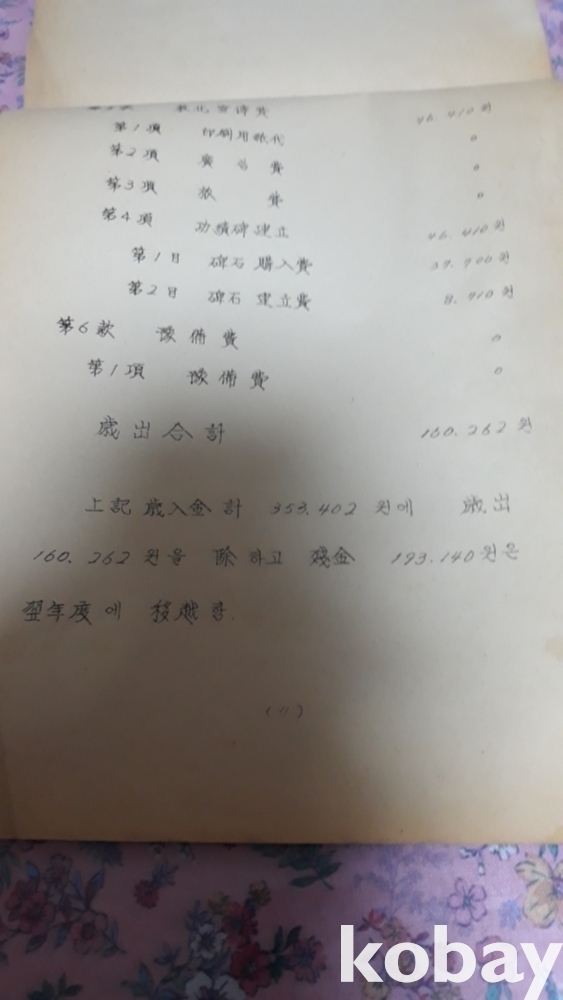 敎化宣傳費 46.410원
第1項 印刷用紙代 0
第2項 廣告費 0
第3項 旅費 0
第4項 功績碑建立 46.410원
第1目 碑石購入費
第2目 碑石建立費 8.910원
第6款 豫備費 0
第1項 豫備費 0
歲出合計 160.262원
上記 歲入合計 353.402원에 歲出
160.262원을 除하고 殘金 193.140원은
翌年度에 移越함.
(11)
kobay